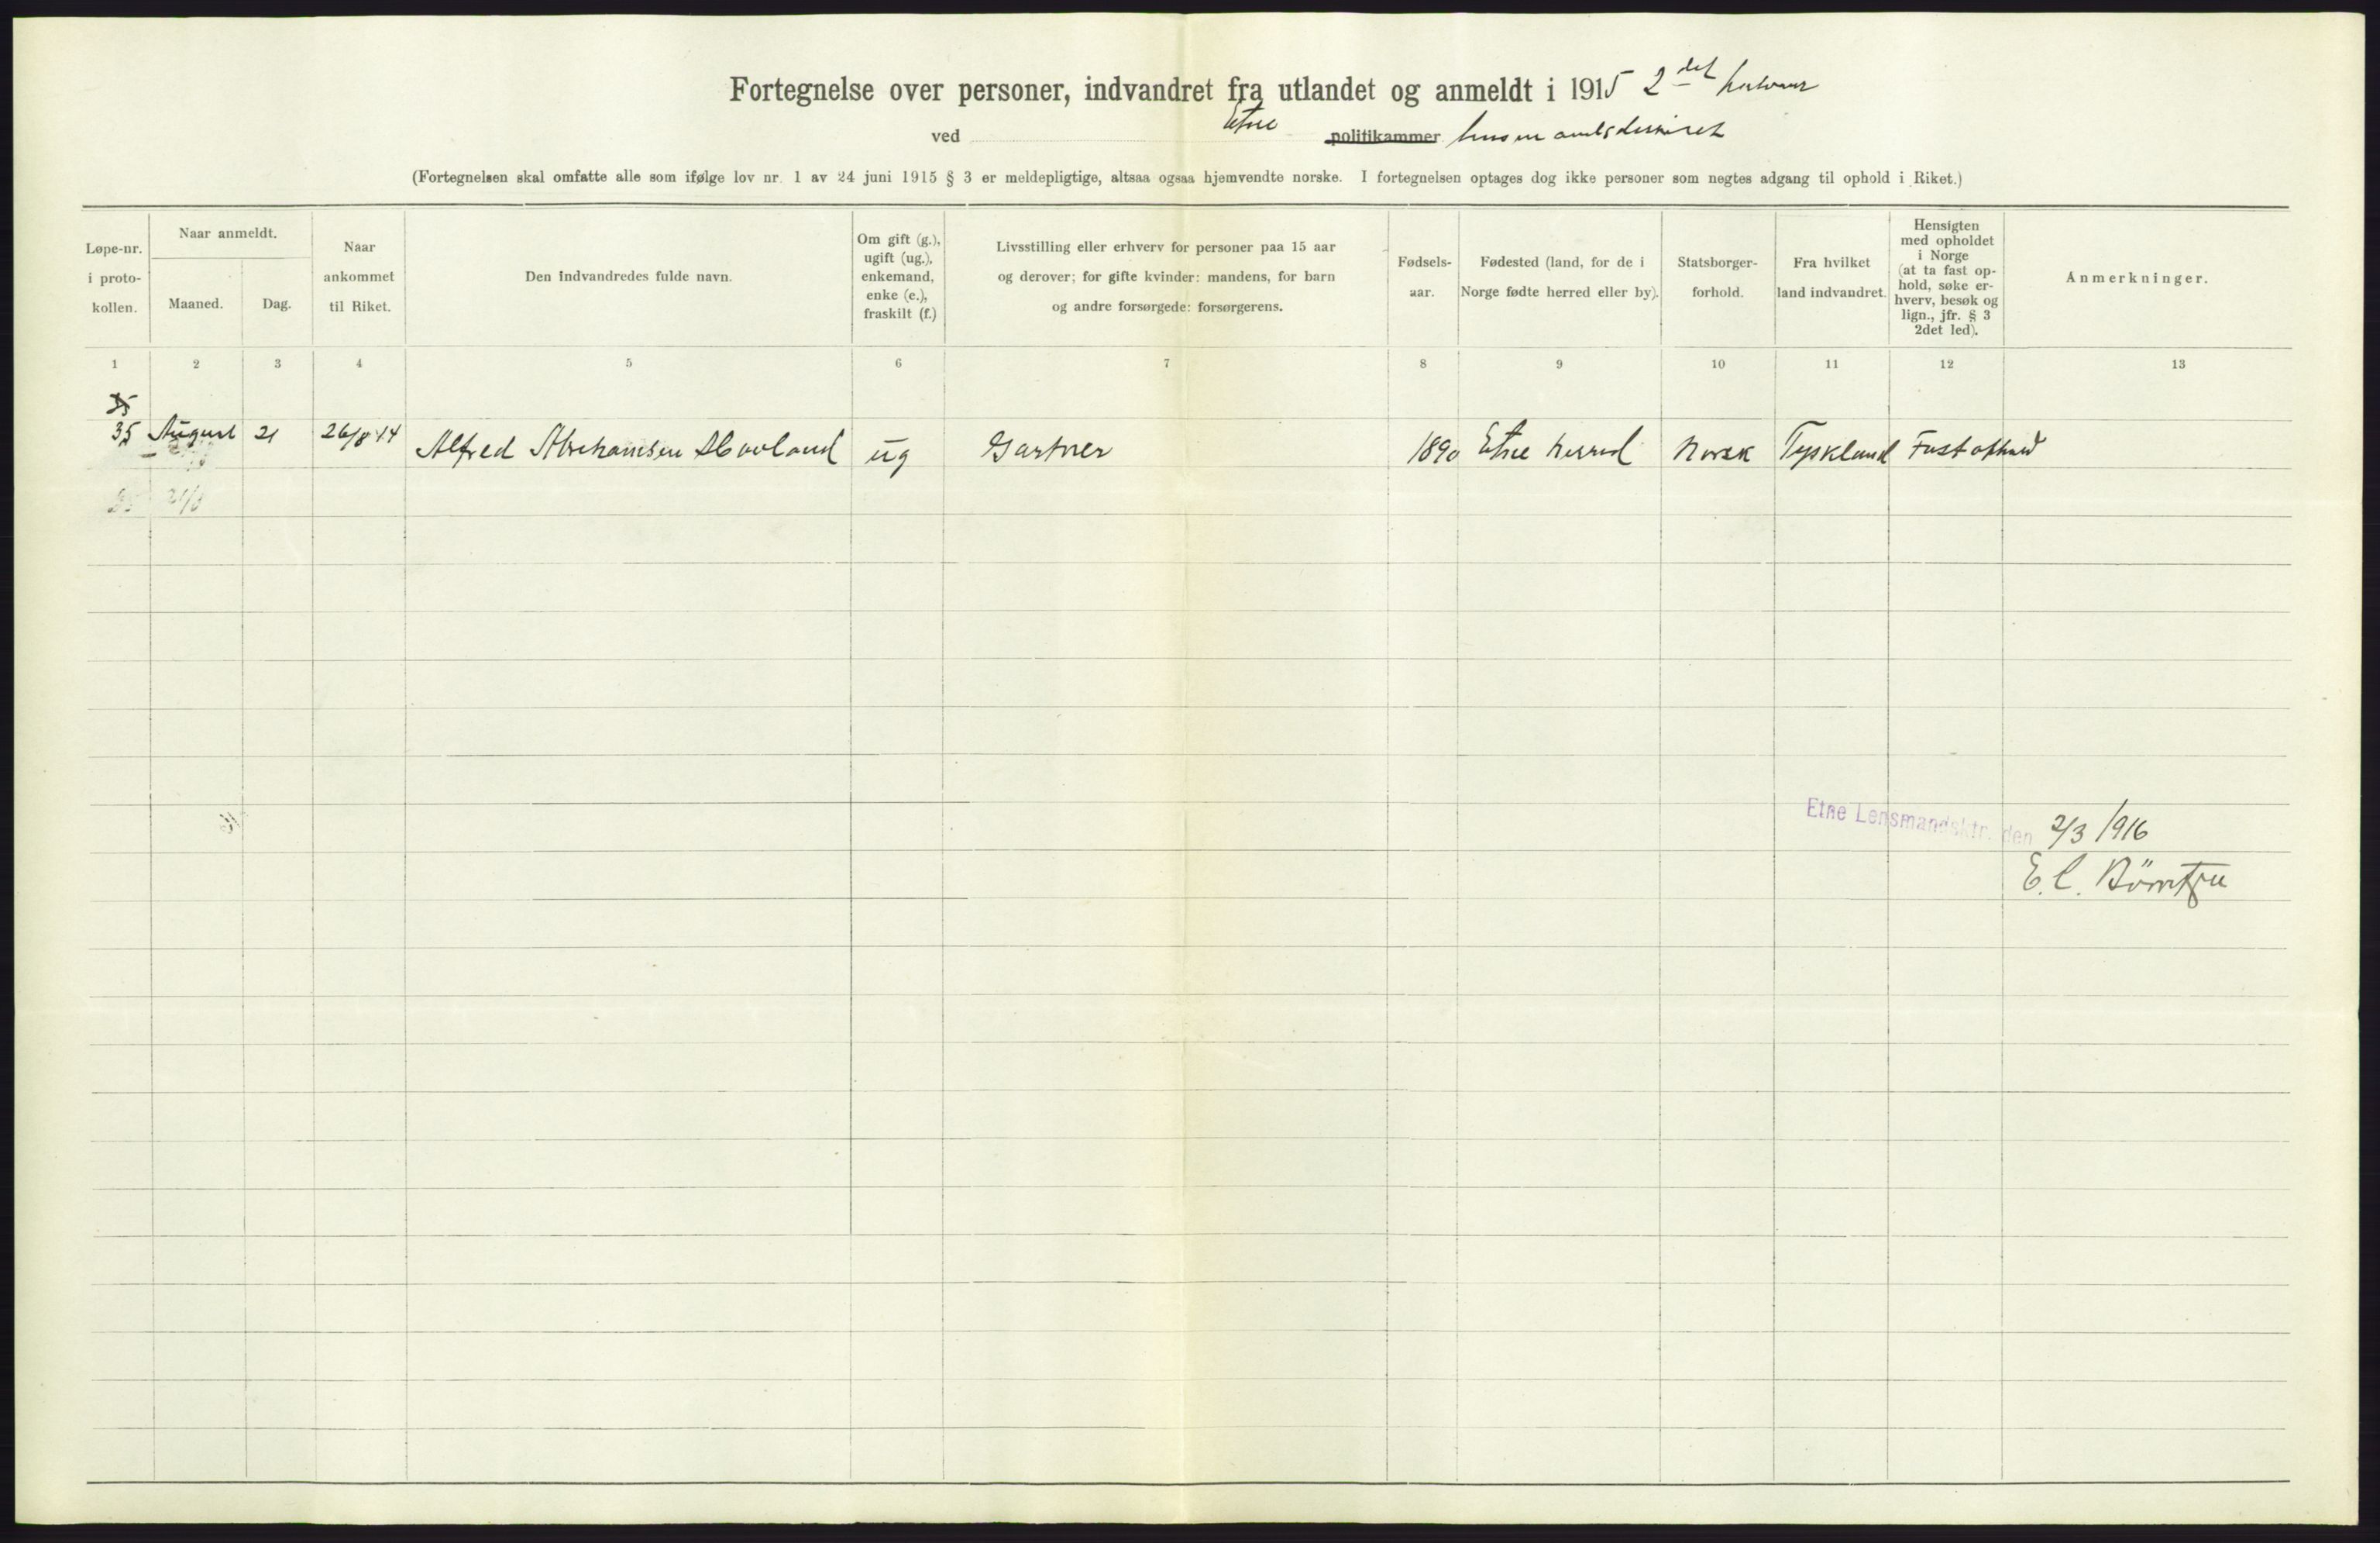 Fortegnelse over personer, indvandret fra utlandet og anmeldt i 1915 2det halvaar
ved Etne politikammer lensmandsdistrict
(Fortegnelsen skal omfatte alle som ifølge lov nr. 1 av 24 juni 1915 § 3 er meldepligtige, altsaa ogsaa hjemvendte norske. I fortegnelsen optages dog ikke personer som negtes adgang til ophold i Riket.)
Løpe-nr.
i proto-
kollen.
Naar anmeldt.
Maaned.
Dag.
Naar
ankommet
til Riket.
Den indvandredes fulde navn.
Om gift (g.),
ugift (ug.),
enkemand,
enke (e.),
fraskilt (f.)
Livsstilling eller erhverv for personer paa 15 aar
og derover; for gifte kvinder: mandens, for barn
og andre forsørgede: forsørgerens.
Fødsels-
aar.
Fødested (land, for de i
Norge fødte herred eller by).
Statsborger-
forhold.
Fra hvilket
land indvandret.
Hensigten
med opholdet
i Norge
(at ta fast op-
hold, søke er-
hverv, besøk og
lign., jfr. § 3
2det led).
Anmerkninger.
1 2 3 4 5 6 7 8 9 10 11 12 13
35
35 August 21 26/8 14 Alfred Abrahamsen Havland ug Gartner 1890 Etne herred Norsk Tyskland Fast ophold
21/8
Etne Lensmandsktr. den 2/3 1916
E. C.